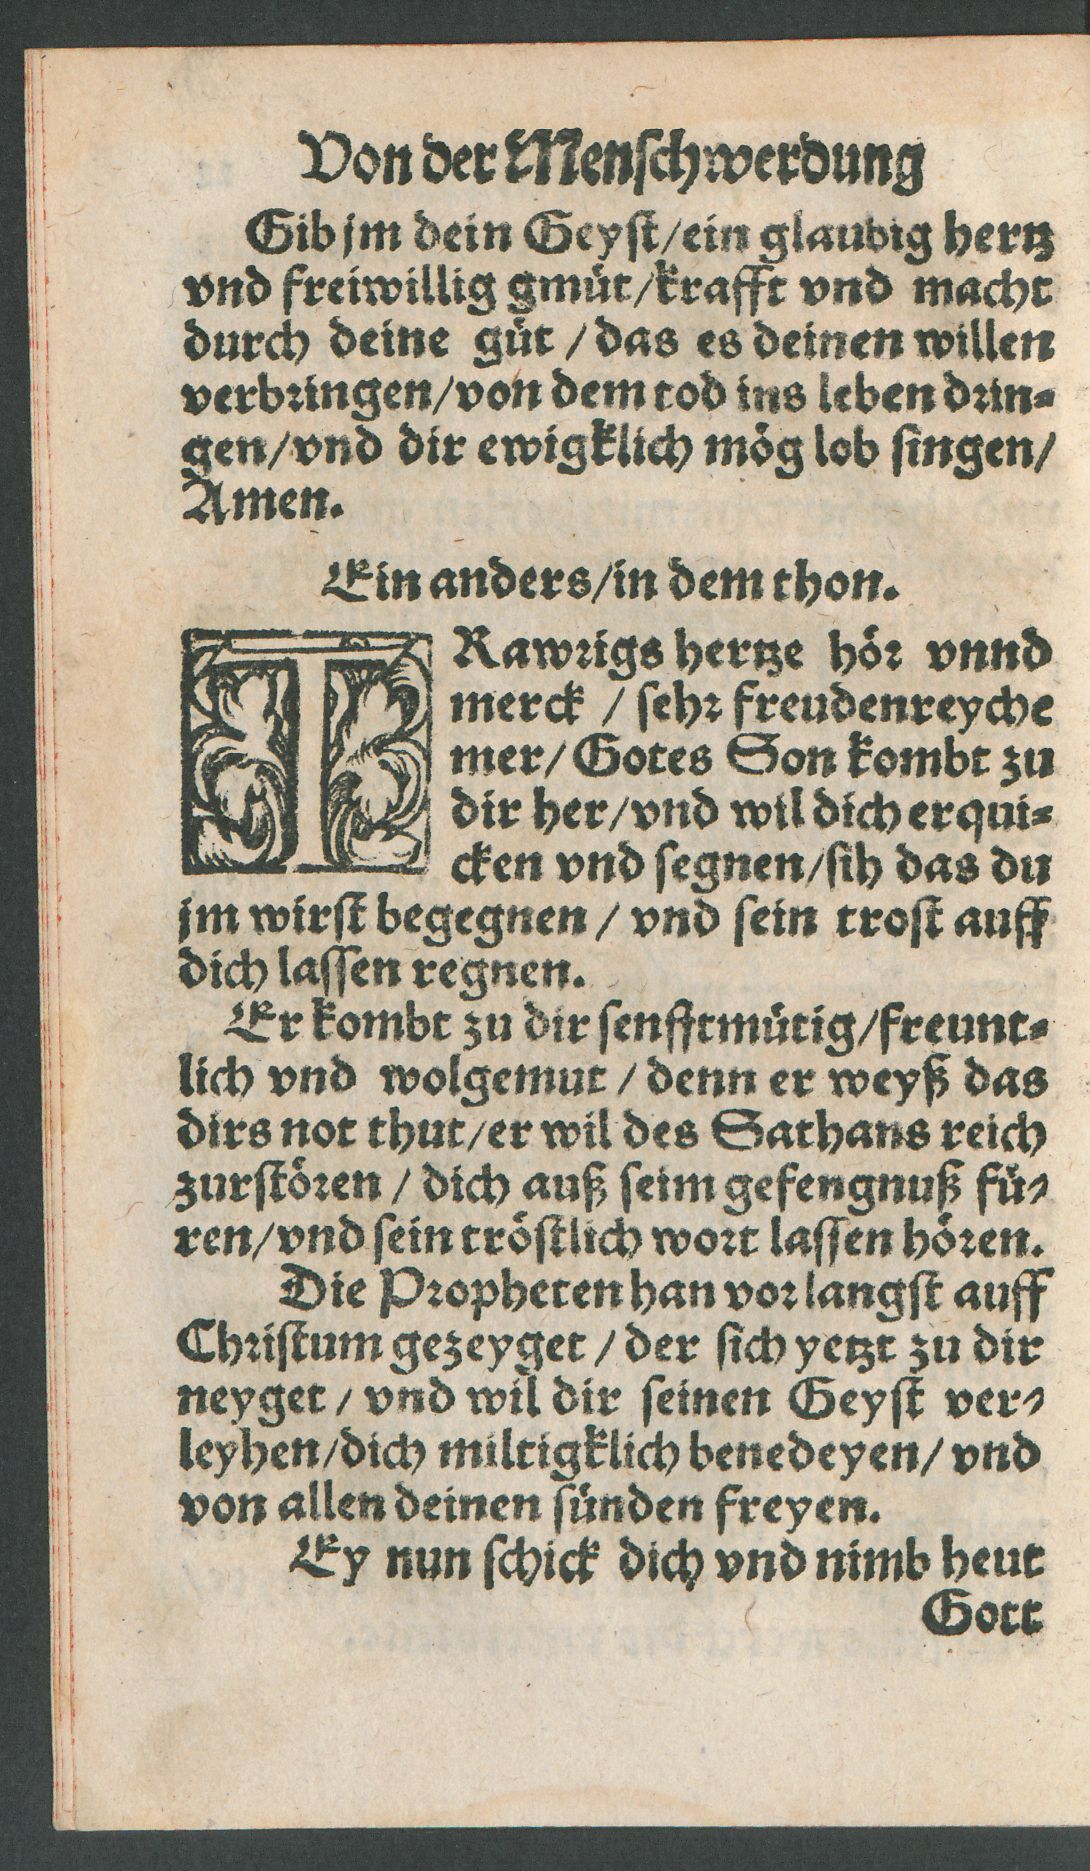 Von der Menschwerdung
Gib jm dein Geyst/ein glaubig hertz
vnd freiwillig gmüt/krafft vnd macht
durch deine güt / das es deinen willen
verbringen/von dem tod ins leben drin-
gen/vnd dir ewigklich mög lob singen/
Amen.
Ein anders/in dem thon.
TRawrigs hertze hör vnnd
merck / sehr freudenreyche
mer/ Gotes Son kombt zu
dir her/vnd wil dich erqui-
cken vnd segnen/sih das du
jm wirst begegnen / vnd sein trost auff
dich lassen regnen.
Er kombt zu dir senfftmütig/freunt-
lich vnd wolgemut / denn er weyß das
dirs not thut/er wil des Sathans reich
zurstören / dich auß seim gefengnuß fü-
ren/vnd sein tröstlich wort lassen hören.
Die Propheten han vorlangst auff
Christum gezeyget / der sich yetzt zu dir
neyget / vnd wil dir seinen Geyst ver-
leyhen/dich miltigklich benedeyen/ vnd
von allen deinen sünden freyen.
Ey nun schick dich vnd nimb heut
Gott